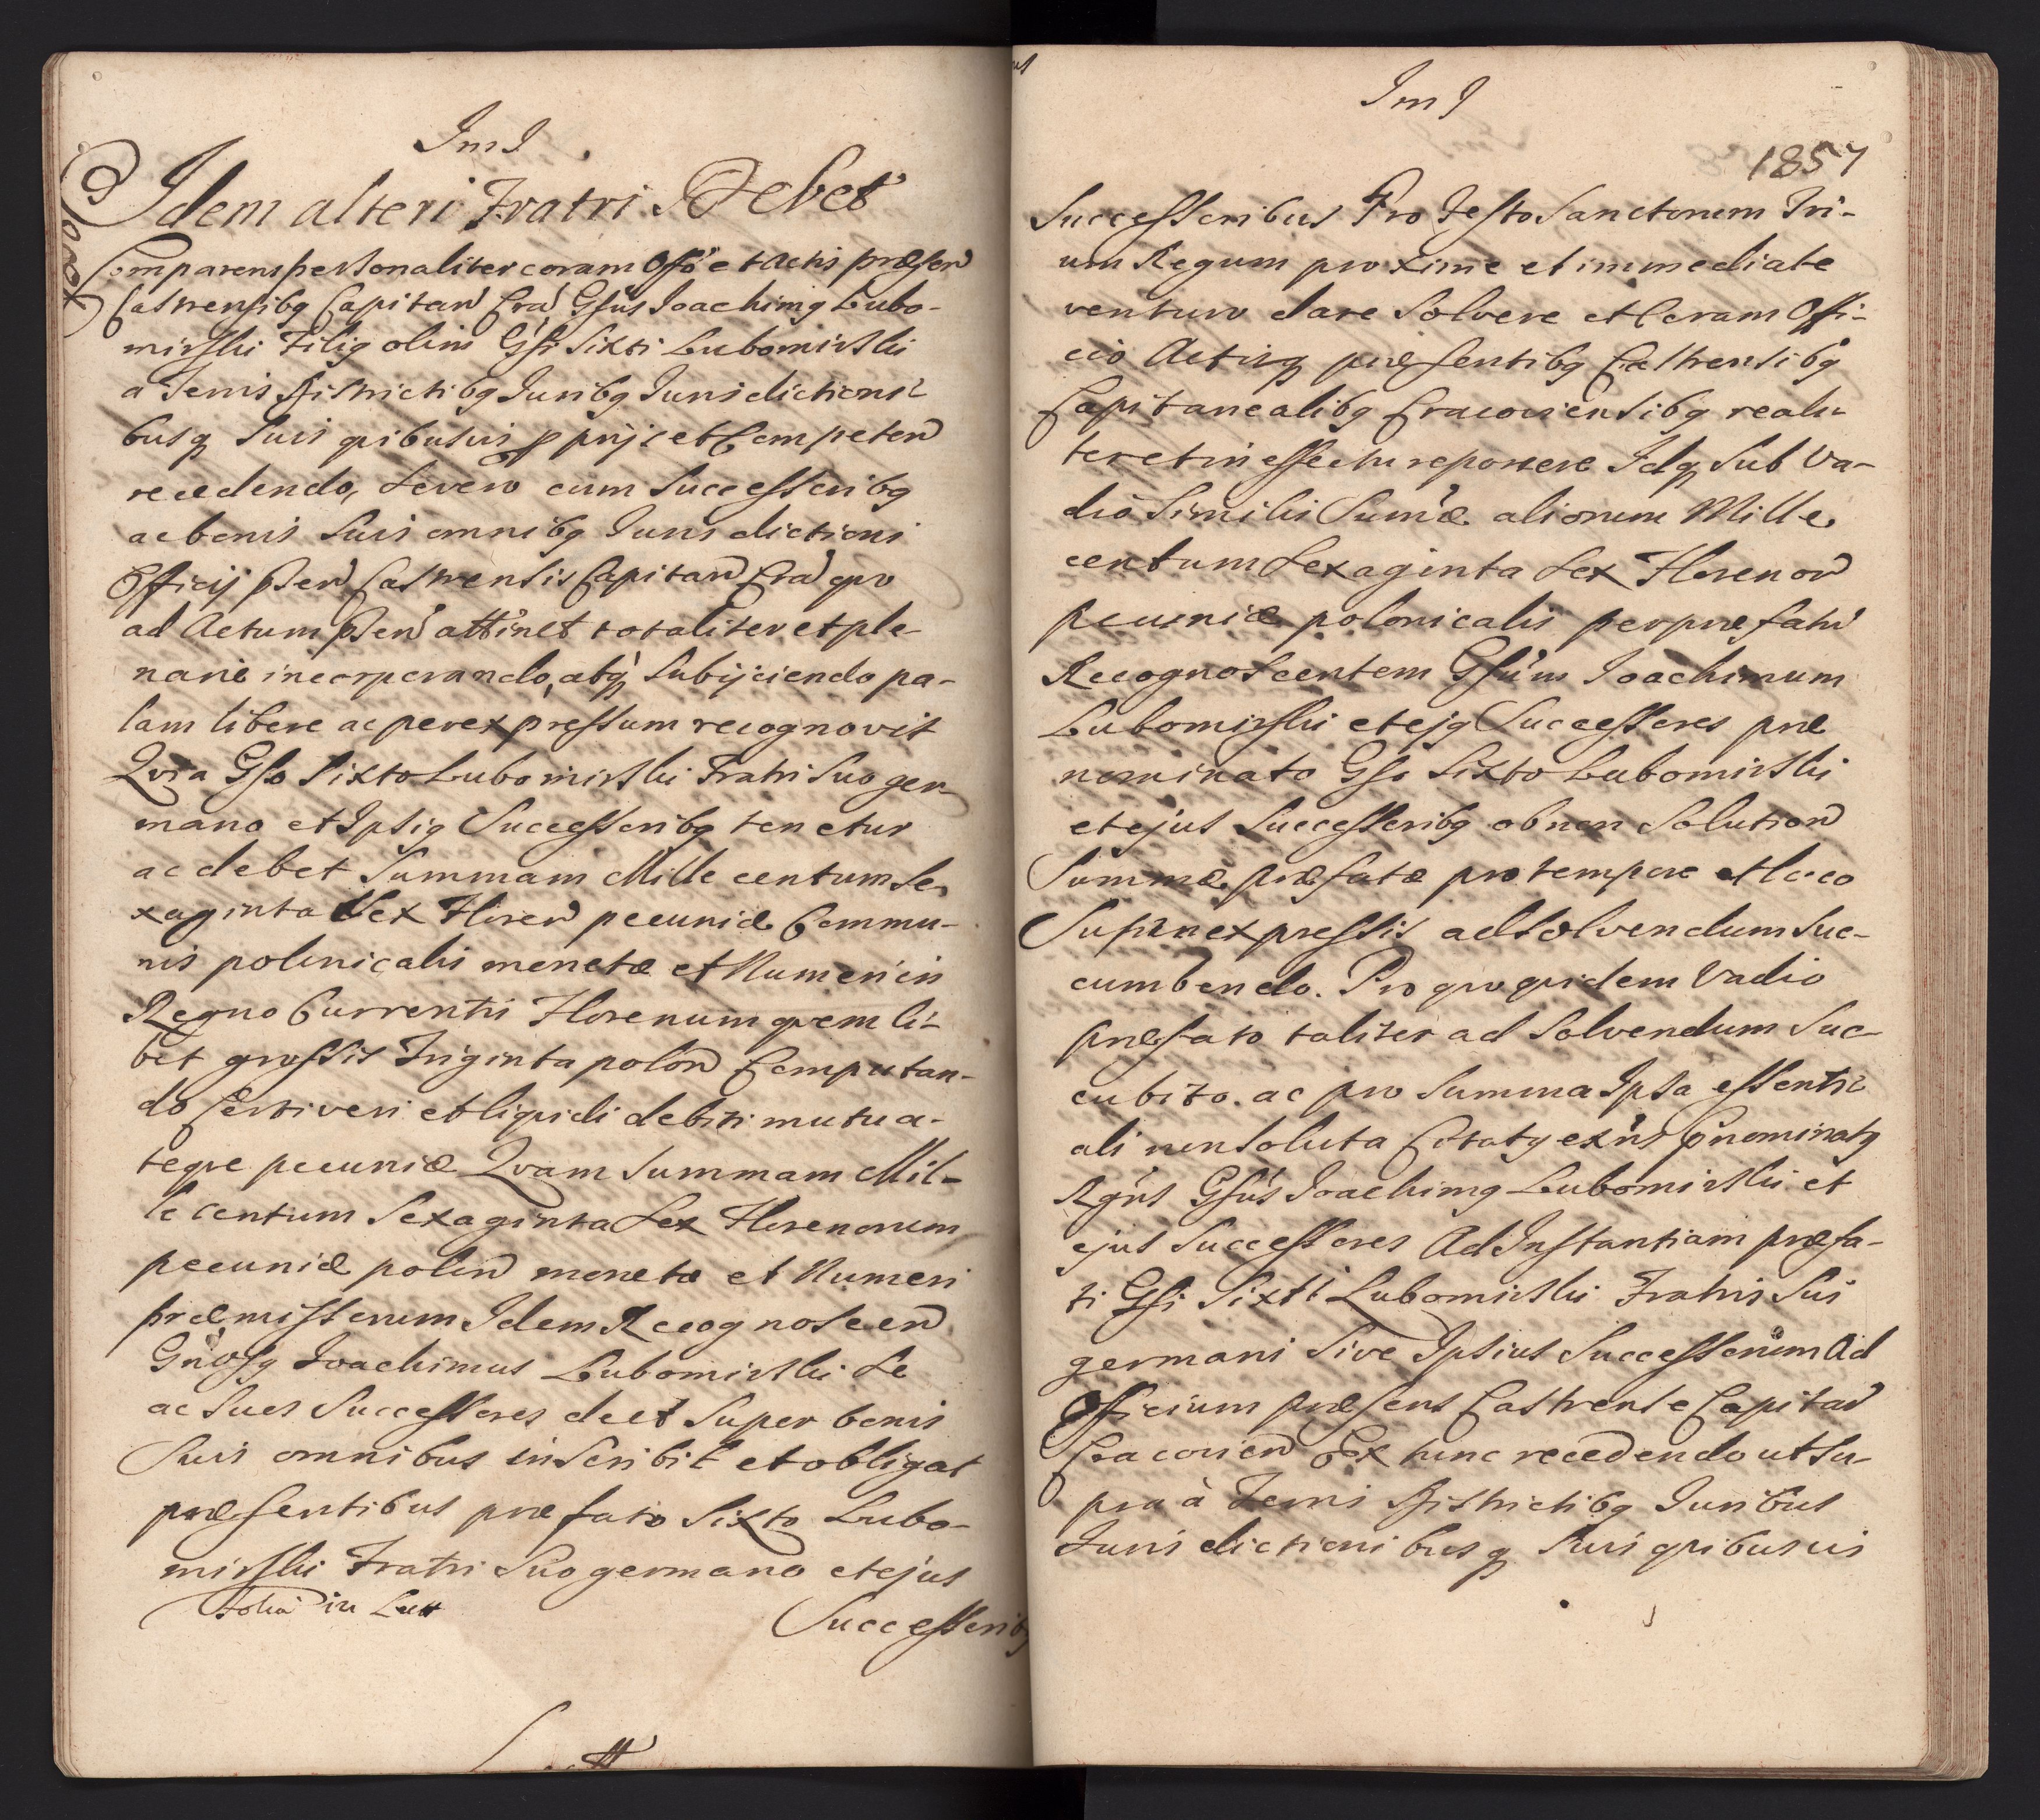 Im J
Idem alteri Fratri Debet
Comparens personaliter coram Offo et Actis præsen
Castrensibq Capitan Cra Gsus Joachimq Lubo-
mirski Filiq olim Gsi Sixti Lubomirski
a Terris Districtibq Juribq Jurisdictioni-
busq Suis quibusvis pprijs et Competen
recedendo, Severo cum Successoribq
ac bonis Suis omnibq Jurisdictioni
Officij psen Castrensis Capitan Cra quo
ad Actum psen attinet totaliter et ple-
narie incorporando, atq Subijciendo pa-
lam libere ac per expressum recognovit
Qvia Gso Sixto Lubomirski Fratri Suo ger-
mano et Ipsiq Successoribq tenetur
ac debet Summam Mille centum Se-
xaginta Sex Floren pecuniæ Commu-
nis polonicalis monetæ et Numeri in
Regno Currentis Florenum qvemli-
bet grossis Triginta polon Computan-
do Certi veri et liqvidi debiti mutua-
teqve pecuniæ Qvam Summam Mil-
le centum Sexaginta Sex Florenorum
pecuniæ polon monetæ et Numeri
præmissorum Idem Recognoscen
Gnosq Joachimus Lubomirski Se
ac Suos Successores deet Super bonis
Suis omnibus inscribit et obligat
præsentibus præfato Sixto Lubo-
mirski Fratri Suo germano et ejus
in
Successoribq
Im J
1857
Successoribus Pro Festo Sanctorum Tri-
um Regum proxime et immediate
venturo dare Solvere et Coram Offi-
cio Actisq præsentibq Castrensibq
Capitanealibq Cracoviensibq reali-
ter et in effectu reponere Idq Sub Va-
dio Similis Sumæ aliorum Mille
centum Sexaginta Sex Florenor
pecuniæ polonicalis per præfatu
Recognoscentem Gsum Joachimum
Lubomirski et ejq Successores præ
nominato Gso Sixto Lubomirski
et ejus Successoribq ob non Solution
Summæ præfatæ pro tempore et loco
Superexpressis ad Solvendum Suc-
cumbendo. Pro quo qvidem Vadio
præfato taliter ad Solvendum Suc-
cubito. ac pro Summa Ipsa essenti-
ali non Soluta Citatq exns pnominatq
Rgns Gsus Joachimq Lubomirski et
ejus Successores Ad Instantiam præfa-
ti Gsi Sixti Lubomirski Fratris Sui
germani Sive Ipsius Successorum Ad
Officium præsens Castrense Capitan
Cracovien Ex tunc recedendo ut Su-
pra à Terris Districtibq Juribus
Jurisdictionibusq Suis qvibusvis